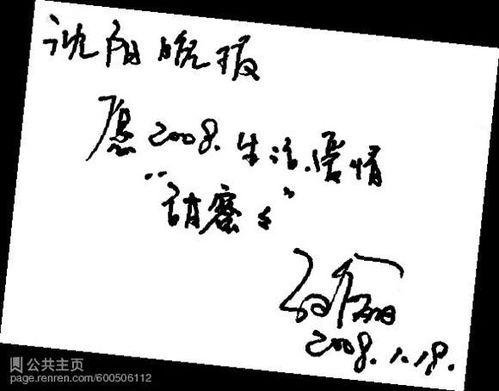 沈阳晚报
愿2008.生活.爱情
“甜蜜々”
孙俪
2008.1.18.
公共主页
page.renren.com/600506112